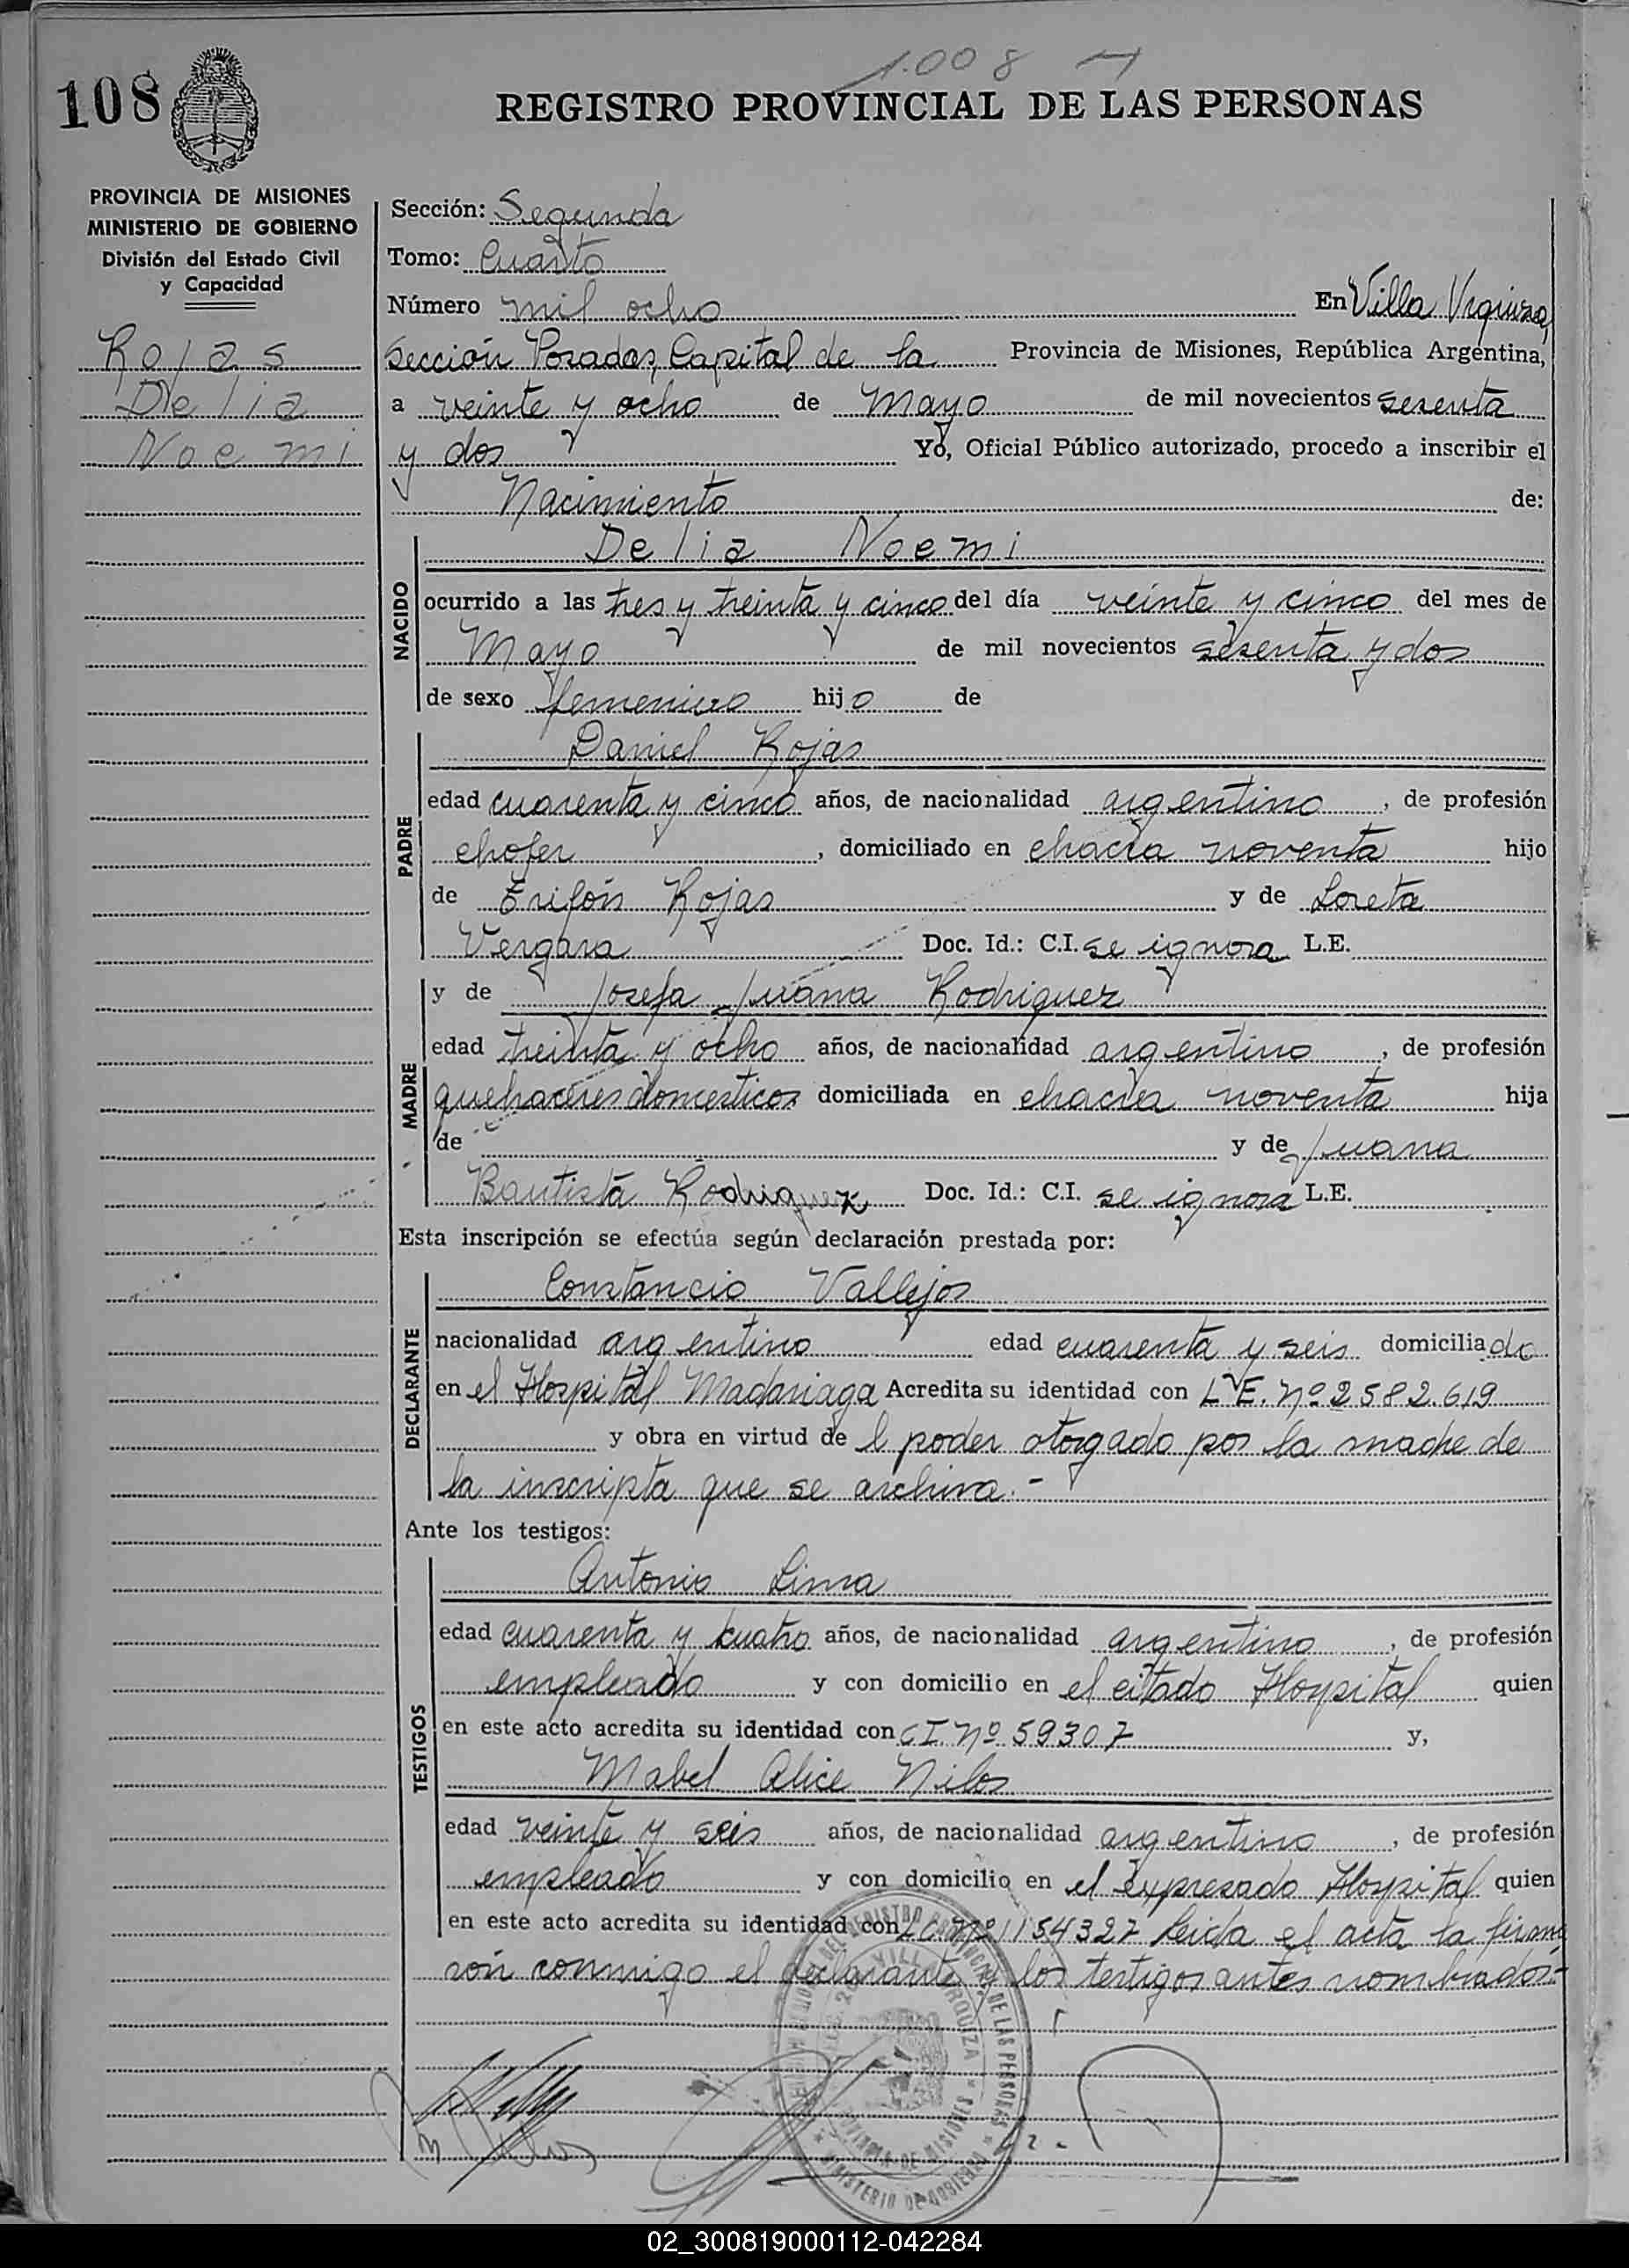 1.008
108
REGISTRO PROVINCIAL DE LAS PERSONAS
PROVINCIA DE MISIONES
MINISTERIO DE GOBIERNO
División del Estado Civil
y Capacidad
Rojas
Delia
Noemi
Sección: Segunda
Tomo: Cuarto
Número mil ocho En Villa Urquiza,
Sección Posadas, Capital de la Provincia de Misiones, República Argentina,
a veinte y ocho de Mayo de mil novecientos sesenta
y dos Yo, Oficial Público autorizado, procedo a inscribir el
Nacimiento de:
NACIDO
Delia Noemi
ocurrido a las tres y treinta y cinco del día veinte y cinco del mes de
Mayo de mil novecientos sesenta y dos
de sexo femenino hijo de
PADRE
Daniel Rojas
edad cuarenta y cinco años, de nacionalidad argentino, de profesión
chofer, domiciliado en chacra noventa hijo
de Rojas y de Loreta
Vergara Doc. Id.: C.I. se ignora L.E.
MADRE
y de Josefa Juana Rodriguez
edad treinta y ocho años, de nacionalidad argentino, de profesión
quehaceres domesticos domiciliada en chacra noventa hija
de y de Juana
Bautista Rodriguez Doc. Id.: C.I. se ignora L.E.
Esta inscripción se efectúa según declaración prestada por:
DECLARANTE
Constancio Vallejos
nacionalidad argentino edad cuarenta y seis domiciliado
en el Hospital Madariaga Acredita su identidad con L.E. Nº 2582.619
y obra en virtud de l poder otorgado por la madre de
la inscripta que se archiva.-
Ante los testigos:
TESTIGOS
Antonio Lima
edad cuarenta y cuatro años, de nacionalidad argentino, de profesión
empleado y con domicilio en el citado Hospital quien
en este acto acredita su identidad con C.I. Nº 59307 y,
Mabel Alice
edad veinte y seis años, de nacionalidad argentino, de profesión
empleado y con domicilio en el expresado Hospital quien
en este acto acredita su identidad con L.C. Nº 1154327 Leida el acta la firma
rón conmigo el declarante y los testigos antes nombrados.-
DEL REGISTRO PROVINCIAL DE LAS PERSONAS
VILLA URQUIZA
PROVINCIA DE MISIONES
MINISTERIO DE GOBIERNO
02_300819000112-042284